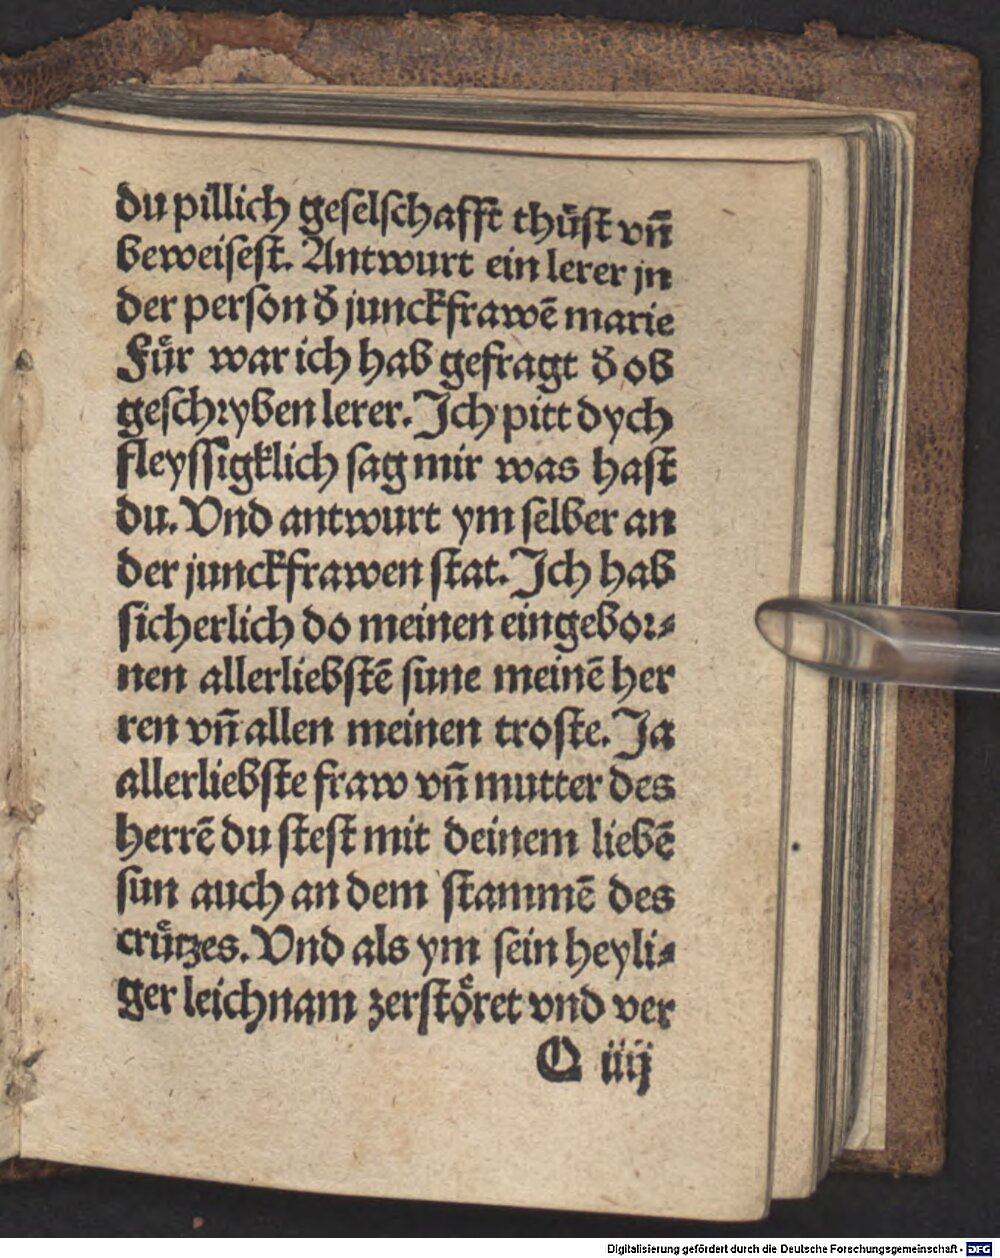 du pillich geselschafft thuͤst vn̄
beweisest. Antwurt ein lerer jn
der person d̕ junckfrawē marie
Fuͤr war ich hab gefragt d̕ ob
geschryben lerer. Ich pitt dych
fleyssigklich sag mir was hast
du. Vnd antwurt ym selber an
der junckfrawen stat. Ich hab
sicherlich do meinen eingebor⸗
nen allerliebstē sune meinē her
ren vn̄ allen meinen troste. Ja
allerliebste fraw vn̄ mutter des
herrē du stest mit deinem liebē
sun auch an dem stammē des
cruͤtzes. Vnd als ym sein heyli⸗
ger leichnam zerstoͤret vnd ver
Q iiij
Digitalisierung gefördert durch die Deutsche Forschungsgemeinschaft - DFG